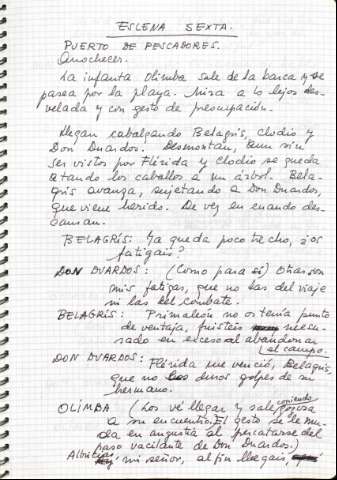 ESCENA SEXTA.
PUERTO DE PESCADORES.
Anochecer.
La infanta Olimba sale de la barca y se
pasea por la playa. Mira a lo lejos des-
velada y con gesto de preocupación.
Llegan cabalgando Belagrís, Clodio y
Don Duardos. Desmontan, sin
ser vistos por Flérida y Clodio se queda
atando los caballos a un árbol. Bela-
grís avanza, sujetando a Don Duardos,
que viene herido. De vez en cuando des-
cansan.
BELAGRÍS: Ya queda poco trecho, ¿os
fatigáis?
DON DUARDOS: (Como para sí) Otras son
mis fatigas, que no las del viaje
ni las del combate.
BELAGRÍS: Primaleón no os tenía punto
de ventaja, fuisteis mesu-
rado en exceso al abandonar
el campo.
DON DUARDOS: Flérida me venció, Belagrís,
que no los duros golpes de su
hermano.
OLIMBA: (Los vé llegar y sale corriendo gozosa
a su encuentro. El gesto se le mu-
da en angustia al percatarse del
paso vacilante de Don Duardos.)
Albricias, mi señor, al fin llegáis,